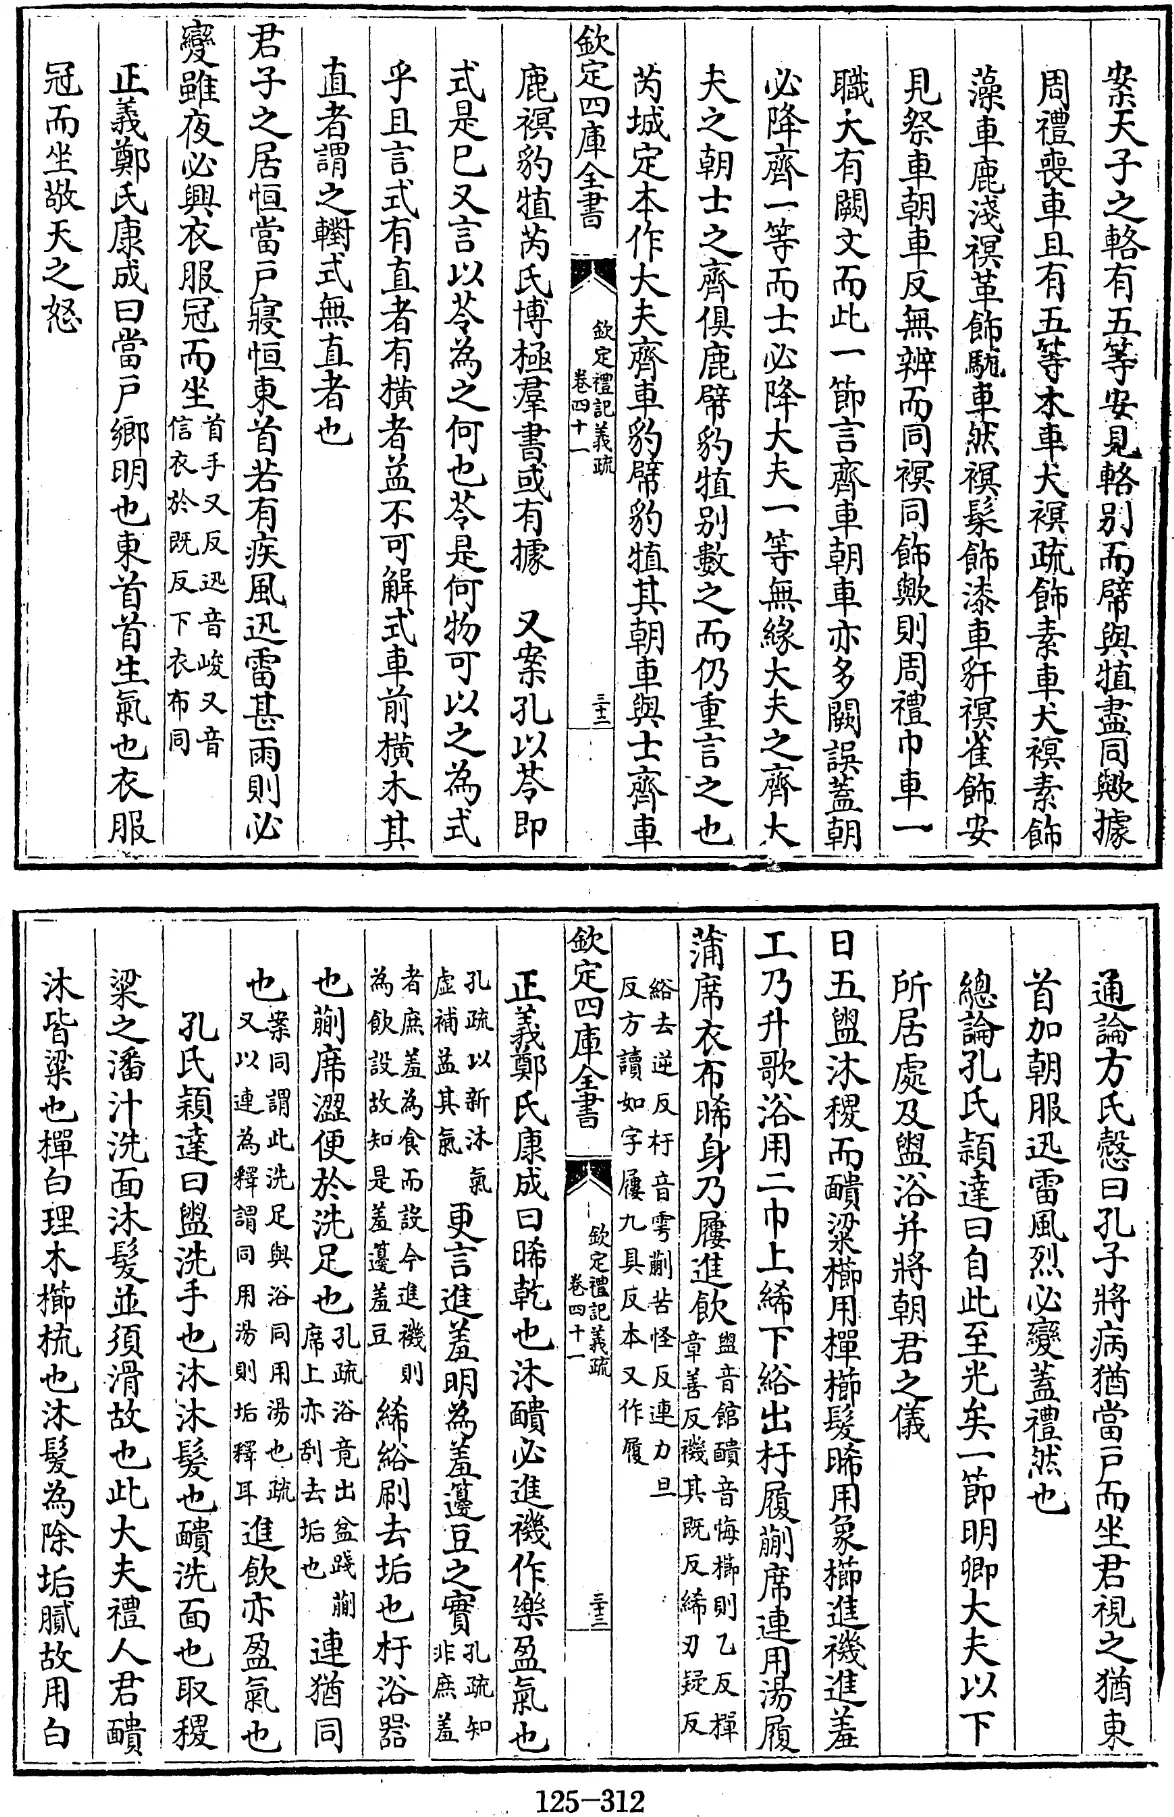 案天子之輅有五等安見輅别而幦與犆盡同歟據
周禮喪車且有五等木車犬䙰疏飾素車犬䙰素飾
藻車鹿淺䙰革飾駹車然䙰髤飾漆車豻䙰雀飾安
見祭車朝車反無辨而同䙰同飾歟則周禮巾車一
職大有闕文而此一節言齊車朝車亦多闕誤葢朝
必降齊一等而士必降大夫一等無緣大夫之齊大
夫之朝士之齊俱鹿幦豹犆别數之而仍重言之也
芮城定本作大夫齊車豹幦豹犆其朝車與士齊車
欽定四庫全書
欽定禮記義疏
卷四十一
三十二
鹿䙰豹犆芮氏博極羣書或有據　又案孔以苓即
式是已又言以苓為之何也苓是何物可以之為式
乎且言式有直者有橫者益不可解式車前橫木其
直者謂之轛式無直者也
君子之居恒當戶寢恒東首若有疾風迅雷甚雨則必
變雖夜必興衣服冠而坐
首手又反迅音峻又音
信衣於既反下衣布同
正義鄭氏康成曰當戶鄉明也東首首生氣也衣服
冠而坐敬天之怒
通論方氏慤曰孔子將病猶當戶而坐君視之猶東
首加朝服迅雷風烈必變葢禮然也
總論孔氏穎達曰自此至光矣一節明卿大夫以下
所居處及盥浴并將朝君之儀
日五盥沐稷而靧粱櫛用樿櫛髮晞用象櫛進禨進羞
工乃升歌浴用二巾上絺下綌出杅履蒯席連用湯履
蒲席衣布晞身乃屨進飲
盥音館靧音悔櫛則乙反樿
章善反禨其既反絺刃疑反
綌去逆反杅音雩蒯苦怪反連力旦
反方讀如字屨九具反本又作履
欽定四庫全書
欽定禮記義疏
卷四十一
三十三
正義鄭氏康成曰晞乾也沐靧必進禨作樂盈氣也
孔疏以新沐氣
虛補益其氣
更言進羞明為羞籩豆之實
孔疏知
非庶羞
者庶羞為食而設今進禨則
為飲設故知是羞籩羞豆
絺綌刷去垢也杅浴器
也蒯席澀便於洗足也
孔疏浴竟出盆踐蒯
席上亦刮去垢也
連猶同
也
案同謂此洗足與浴同用湯也疏
又以連為釋謂同用湯則垢釋耳
進飲亦盈氣也
孔氏穎達曰盥洗手也沐沐髮也靧洗面也取稷
粱之潘汁洗面沐髮並須滑故也此大夫禮人君靧
沐皆粱也樿白理木櫛梳也沐髮為除垢膩故用白
125-312